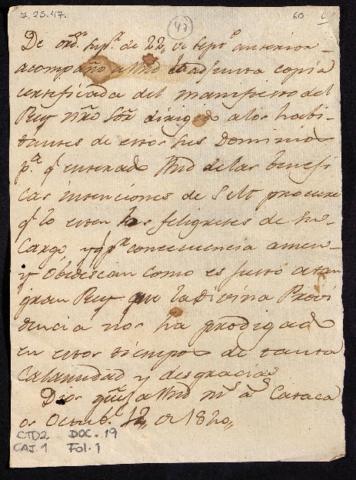 2.23.47.
47
60
De ordn. supr. de 22, de Septe. anterior
acompaño a Vmd la adjunta copia
certificada del manifiesto del
Rey não Sōr dirigido a los habi-
tantes de estos sus Dominios
pa. q. enterado Vmd de las benefi-
cas intenciones de S.M. procure
q. lo esten los feligreses de su
Cargo y pr. concecuencia amen
y obedescan como es justo a tan
gran Rey que la Divina Provi
dencia nos ha prodigado
en estos tiempos de tanta
Calamidad y desgracia
Dios gue. a Vmd ms. as. Caraca
s Octub. 12, de 1820,
CTD2 DOC. 19
CAJ. 1 Fol. 1